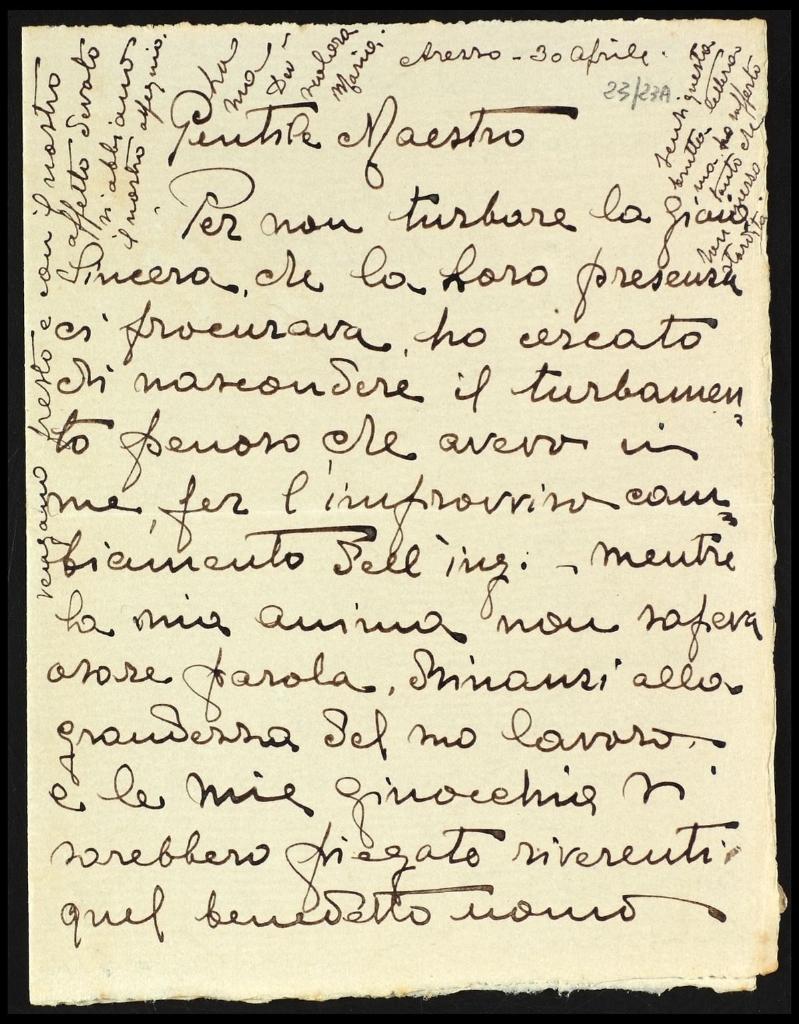 Arezzo - 30 aprile.
23/23A
Gentile Maestro
Per non turbare la gioia
sincera, che la Loro presenza
ci procurava, ho cercato
di nascondere il turbamen„
to penoso, che avevo in
me, per l'improvviso cam„
biamento dell'ing. - mentre
la mia anima non sapeva
osare parola, dinanzi alla
grandezza del suo lavoro.
e le mie ginocchia si
sarebbero piegate riverenti.
quel benedetto uomo
vengano presto e con il nostro
affetto devoto
si abbiano
il nostro ossequio.
La
sua
Maria.
scusi questa
brutta lettera
ma ho sofferto
tanto che
non posso